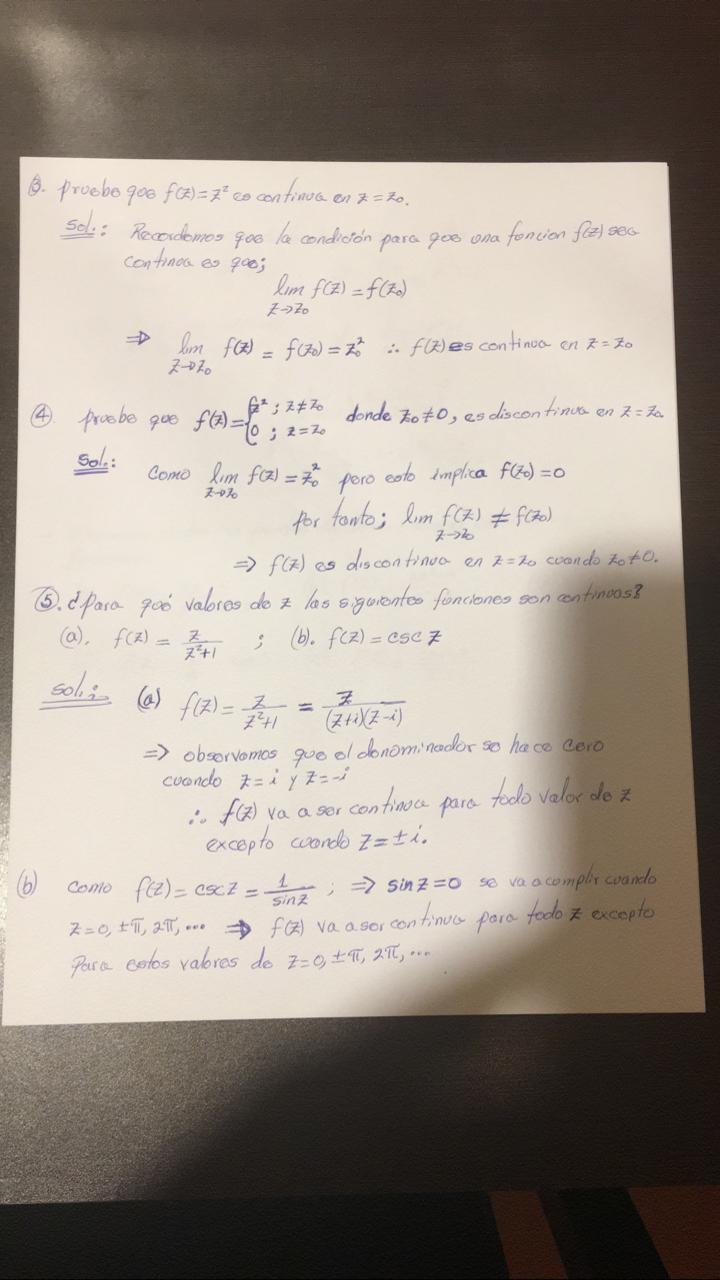 ③. pruebe que f(z)=z² es continua en z=z₀.
Sol.: Recordemos que la condición para que una funcion f(z) sea
continua es que;
lim f(z)=f(z₀)
z→z₀
⇒ lim f(z) = f(z₀) = z₀² ∴ f(z) es continua en z=z₀
z→z₀
④. pruebe que f(z)={z² ; z≠z₀ donde z₀≠0, es discontinua en z=z₀
0 ; z=z₀
Sol.: Como lim f(z) = z₀² pero esto implica f(z₀)=0
z→z₀
Por tanto; lim f(z) ≠ f(z₀)
z→z₀
⇒ f(z) es discontinua en z=z₀ cuando z₀≠0.
⑤. ¿Para qué valores de z las siguientes funciones son continuas?
(a). f(z) = z/(z²+1) ; (b). f(z) = csc z
Sol.: (a) f(z) = z/(z²+1) = z/((z+i)(z-i))
⇒ observamos que el denominador se hace cero
cuando z=i y z=-i
∴ f(z) va a ser continua para todo valor de z
excepto cuando z=±i.
(b) Como f(z) = csc z = 1/sin z ; ⇒ sin z=0 se va a cumplir cuando
z=0, ±π, 2π, ... ⇒ f(z) va a ser continua para todo z excepto
Para estos valores de z=0, ±π, 2π, ...